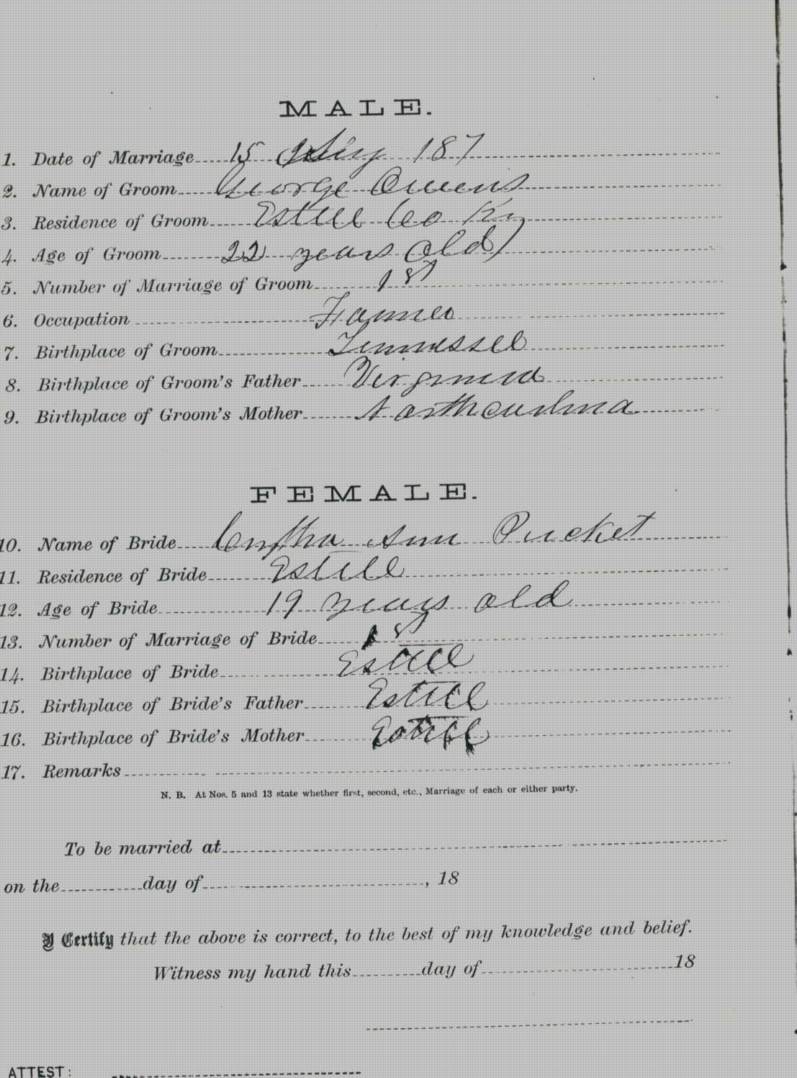 MALE.
1. Date of Marriage 15 187
2. Name of Groom George Owens
3. Residence of Groom Estill Co Ky
4. Age of Groom 22 years old
5. Number of Marriage of Groom 1st
6. Occupation Farmer
7. Birthplace of Groom Tennessee
8. Birthplace of Groom's Father Virginia
9. Birthplace of Groom's Mother
FEMALE.
10. Name of Bride Ann Pucket
11. Residence of Bride Estill
12. Age of Bride 19 years old
13. Number of Marriage of Bride 1st
14. Birthplace of Bride Estill
15. Birthplace of Bride's Father Estill
16. Birthplace of Bride's Mother Estill
17. Remarks
N. B. At Nos. 5 and 13 state whether first, second, etc., Marriage of each or either party.
To be married at
on the day of , 18
I Certify that the above is correct, to the best of my knowledge and belief.
Witness my hand this day of 18
ATTEST: